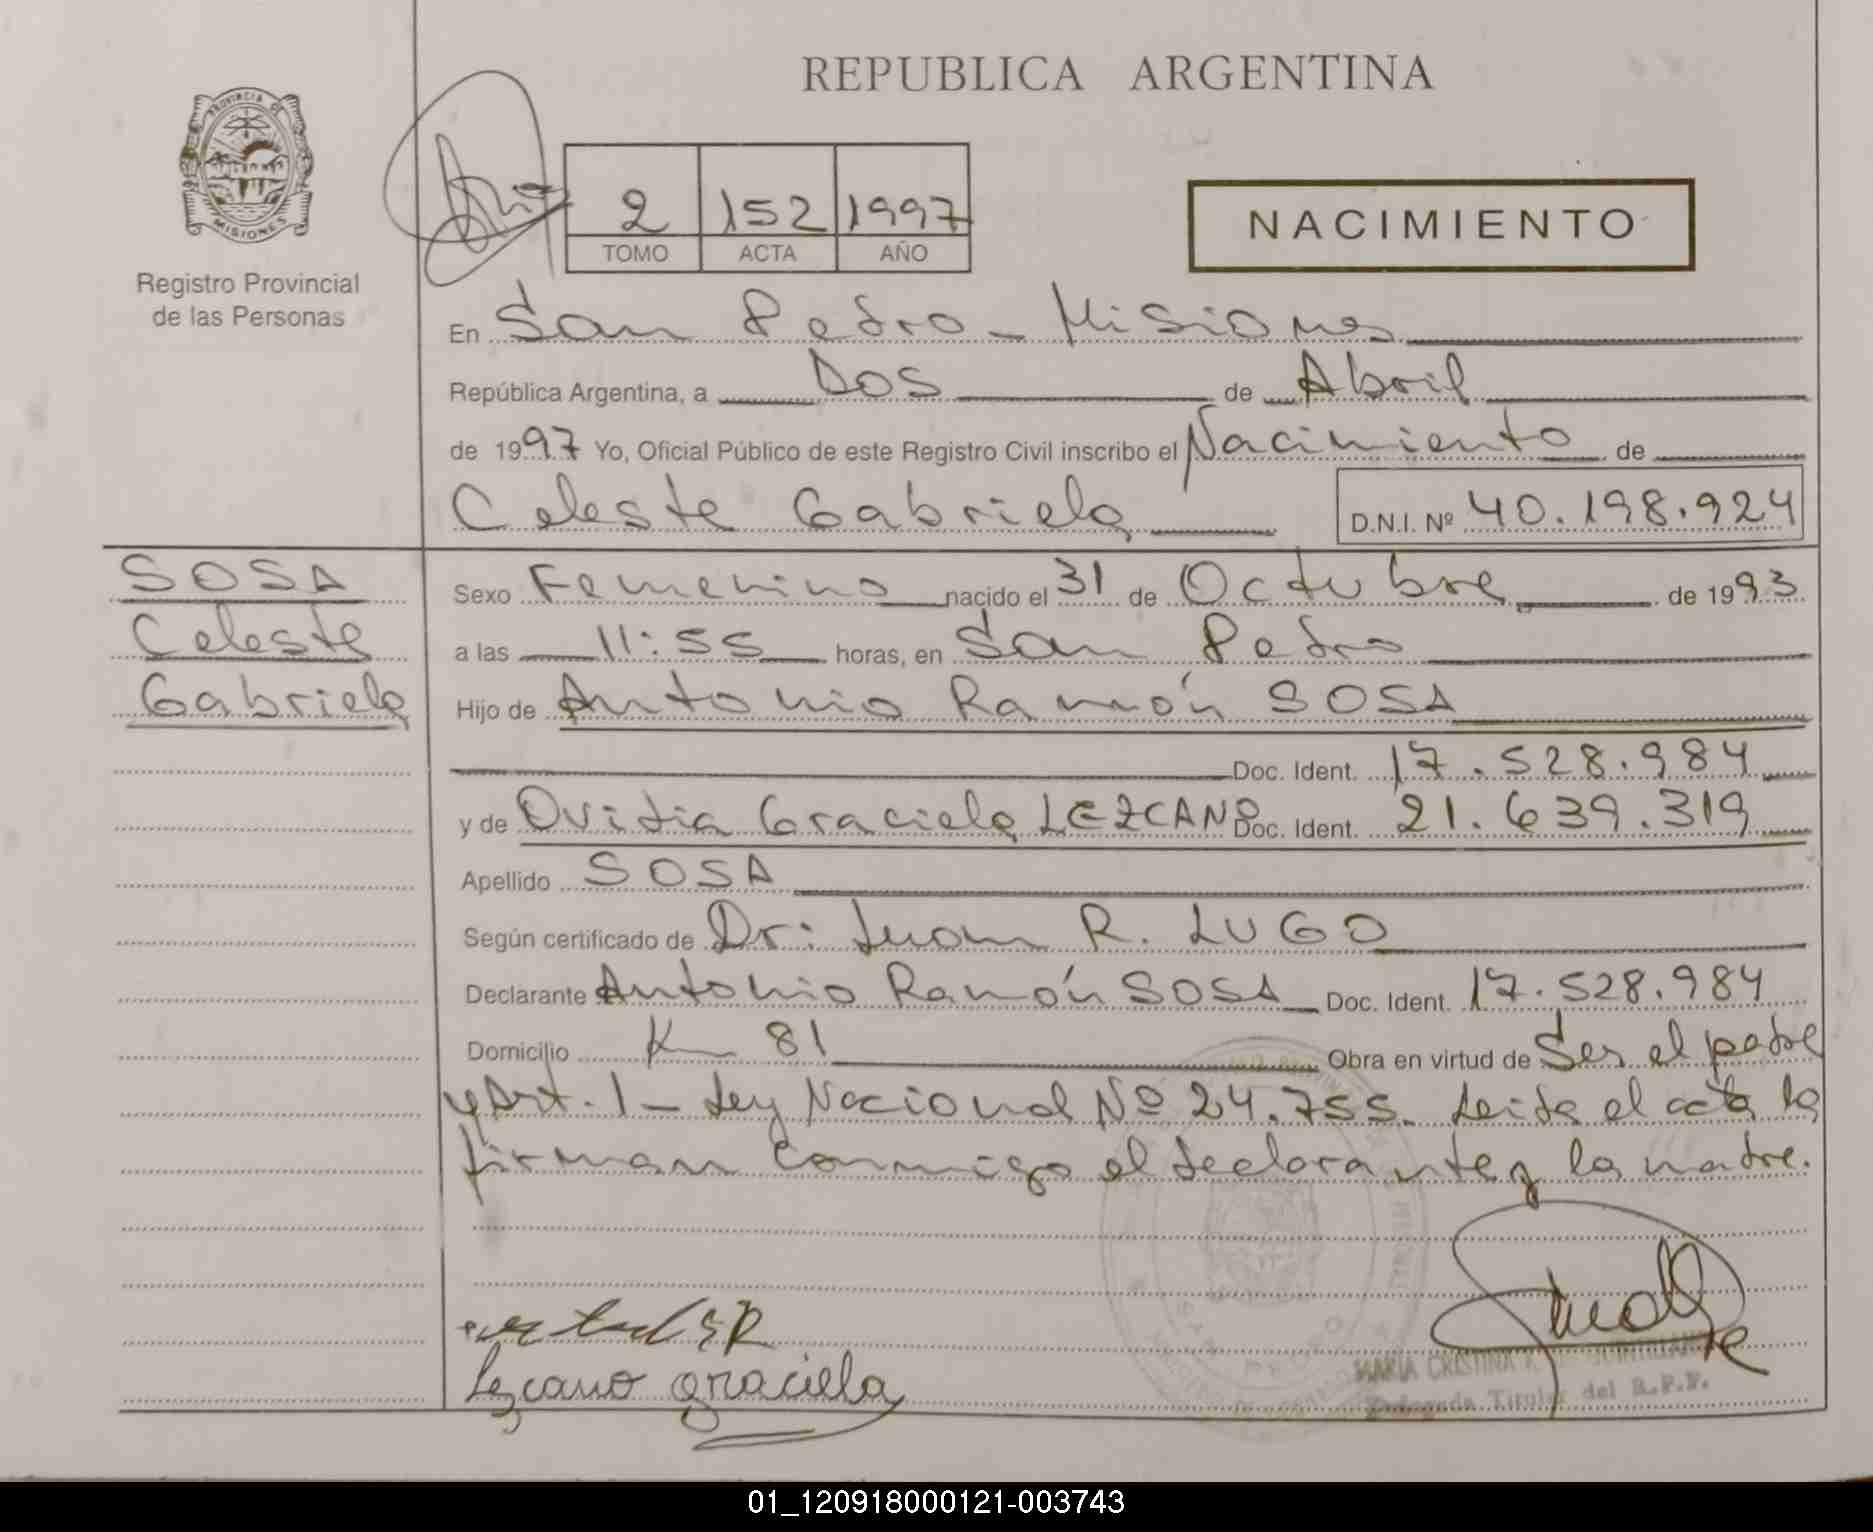 REPUBLICA ARGENTINA
PROVINCIA DE
MISIONES
Registro Provincial
de las Personas
2 152 1997
TOMO ACTA AÑO
NACIMIENTO
En San Pedro - Misiones
República Argentina, a Dos de Abril
de 1997 Yo, Oficial Público de este Registro Civil inscribo el Nacimiento de
Celeste Gabriela D.N.I. Nº 40.198.924
SOSA
Celeste
Gabriela
Sexo Femenino nacido el 31 de Octubre de 1993
a las 11:55 horas, en San Pedro
Hijo de Antonio Ramón SOSA
Doc. Ident. 17.528.984
y de Ovidia Graciela LEZCANO Doc. Ident. 21.639.319
Apellido SOSA
Según certificado de Dr: Juan R. LUGO
Declarante Antonio Ramón SOSA Doc. Ident. 17.528.984
Domicilio Km 81 Obra en virtud de Ser el padre
y Art. 1 - Ley Nacional Nº 24.755. Leida el acta la
firman conmigo el declarante y la madre.
Lezcano graciela
MARIA CRISTINA
Delegada Titular del R.P.P.
01_120918000121-003743